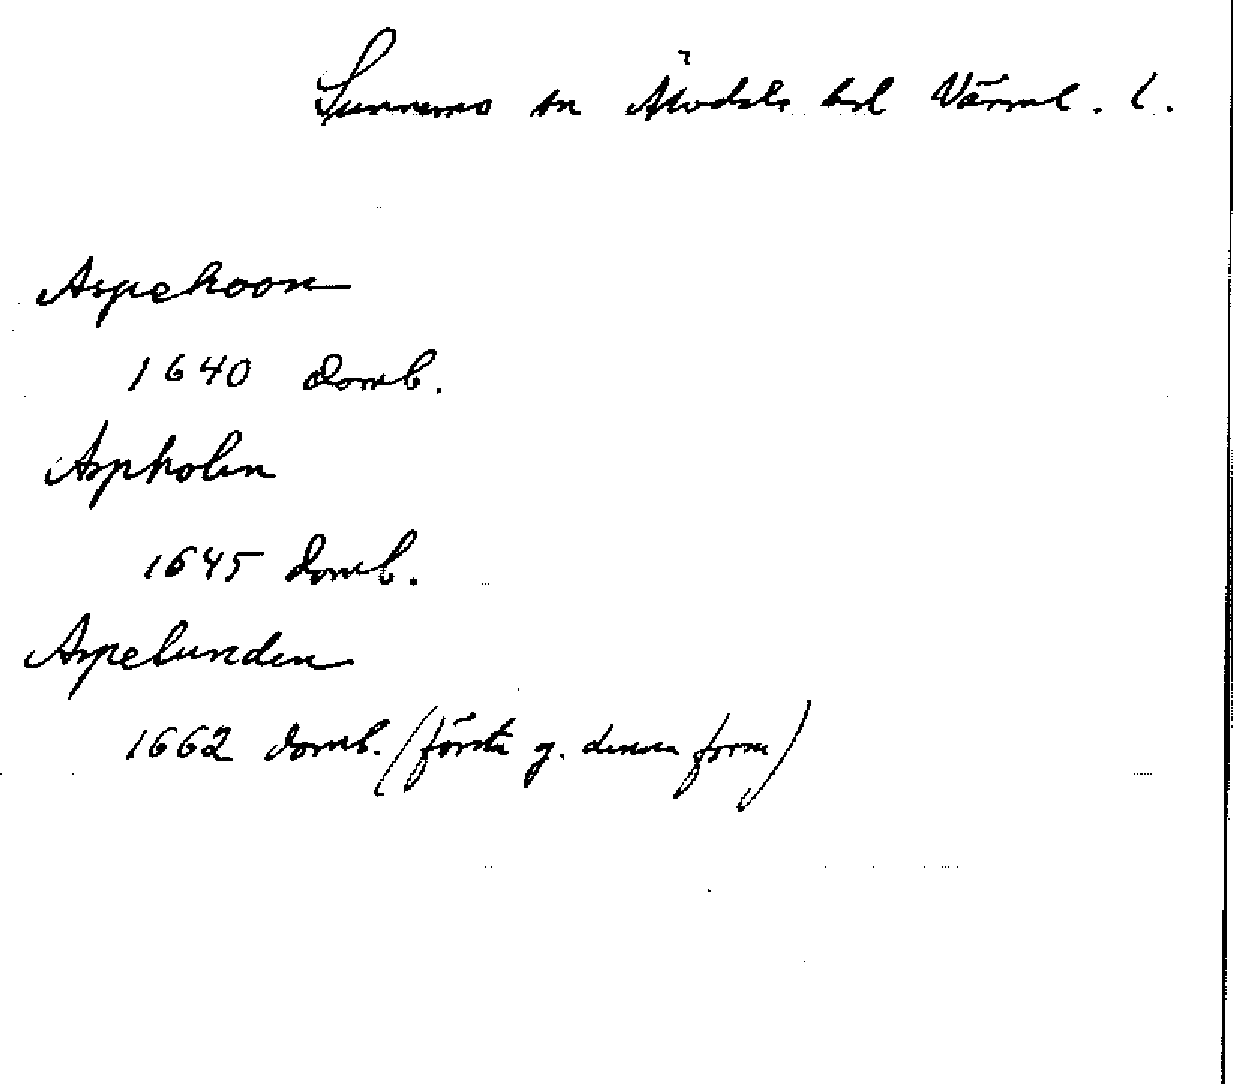 Sunnemo sn Älvdals hd Värml. l.
Aspehoon
1640 Domb.
Aspholen
1645 Domb.
Aspelunden
1662 Domb. (första g. denna form)